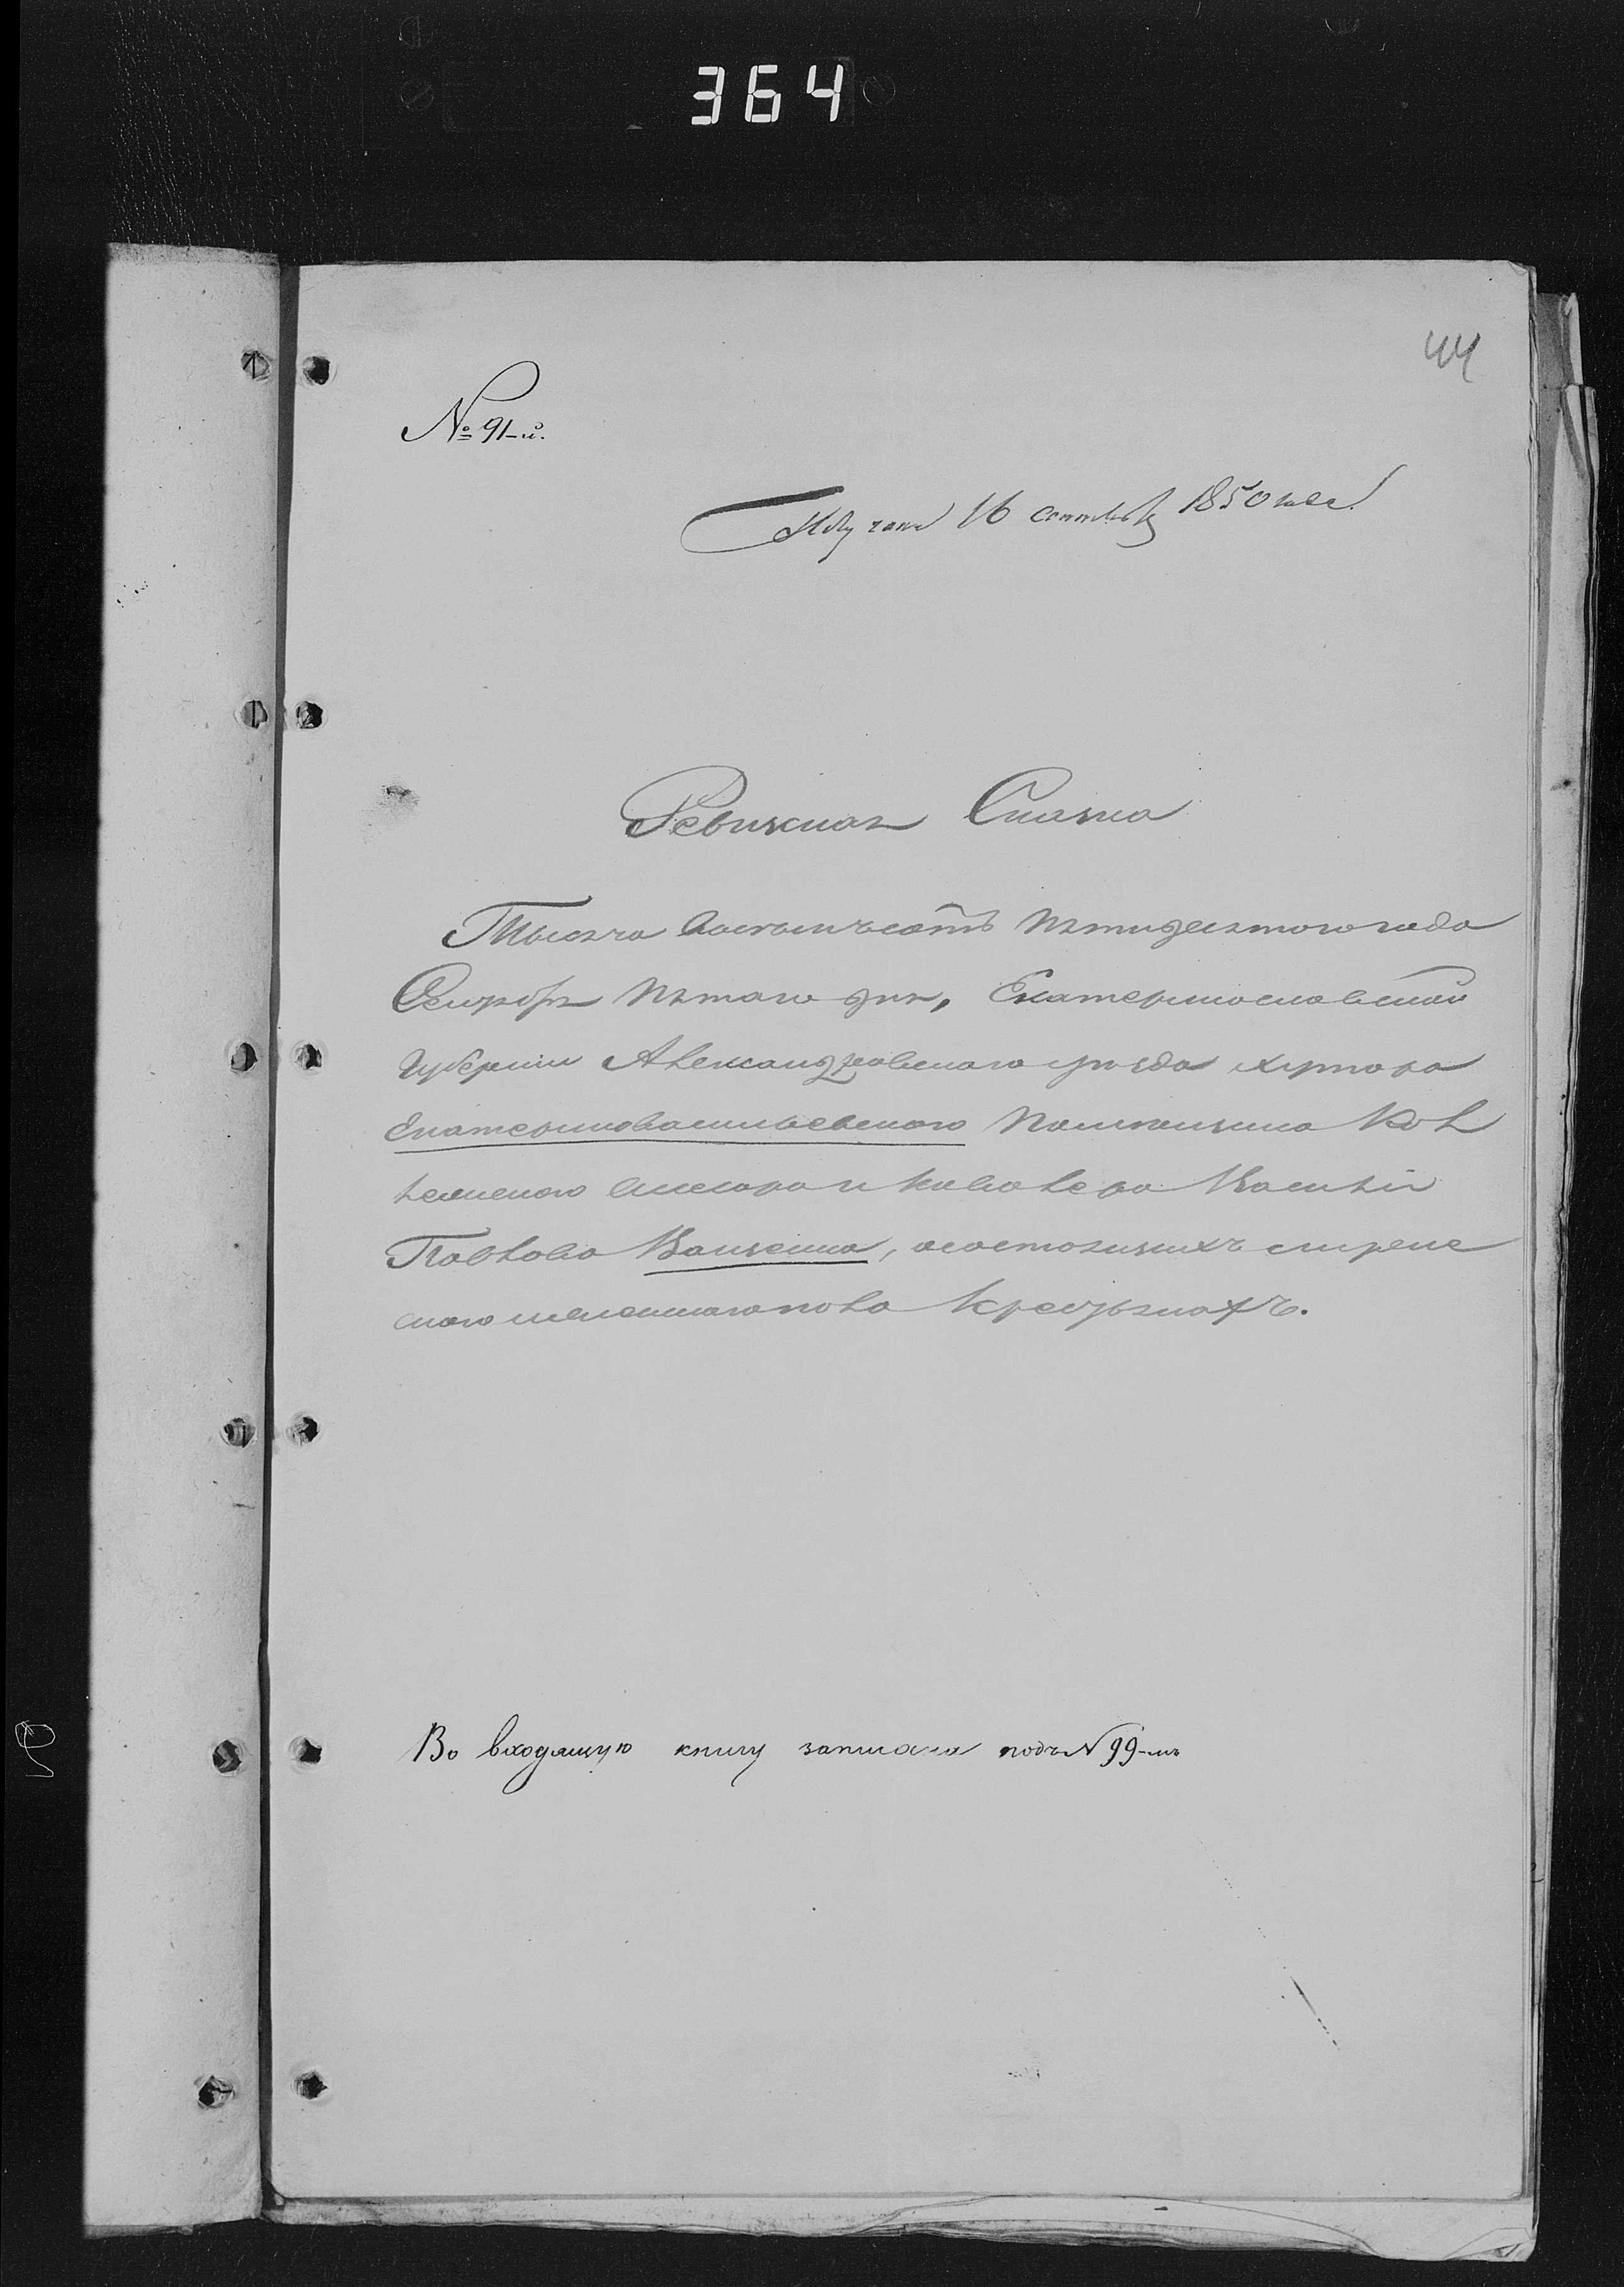 364
44
№ 91-й.
Получена 16 Сентября 1850 года
Ревизская Сказка
Тысяча восемьсотъ пятидесятого года
Сентября пятаго дня, Екатеринославской
губернии Александровского уезда хутора
Екатериновасильевского помещика Кол
лежского асесора и кавалера Василия
Павлова, состоящихъ
мужеска и женскаго пола крестьянахъ.
Во входящую книгу записана подъ N 99-мъ